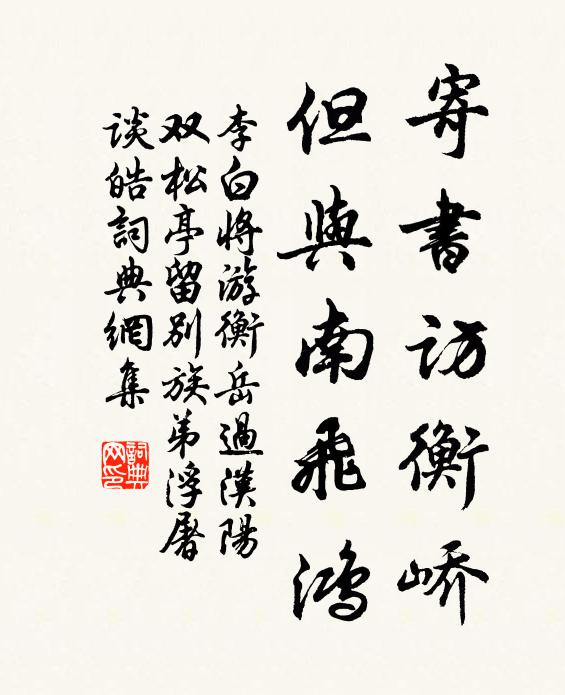 寄書訪衡峤
但與南飛鴻
李白将游衡岳過漢陽
双松亭留别族弟浮屠
谈皓詞典網集
詞典网印